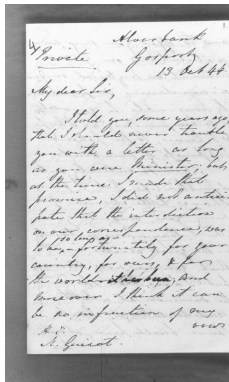 Private
Alverbank
Gosport
13 Oct 44
My dear Sir,
I told you, some years ago,
that I should never trouble
you with a letter as long
as you were Minister: but
at the time I made that
promise, I did not antici
pate that the interdiction
on our correspondence, was
to be, so long - fortunately for your
country, for ours, & for
the world and
moreover I think it can
be no infraction of my
vow
M. Guizot.